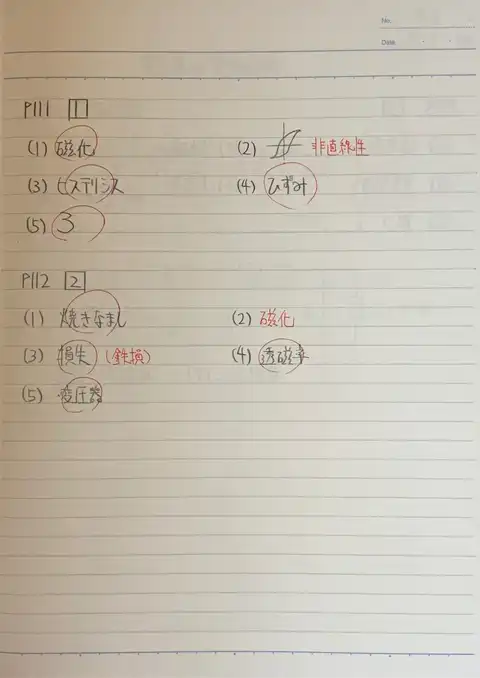 No.
Date
P111 1
(1) 磁化 (2) 非直線性
(3) ヒステリシス (4) ひずみ
(5) 3
P112 2
(1) 焼きなまし (2) 磁化
(3) 損失 (鉄損) (4) 透磁率
(5) 変圧器